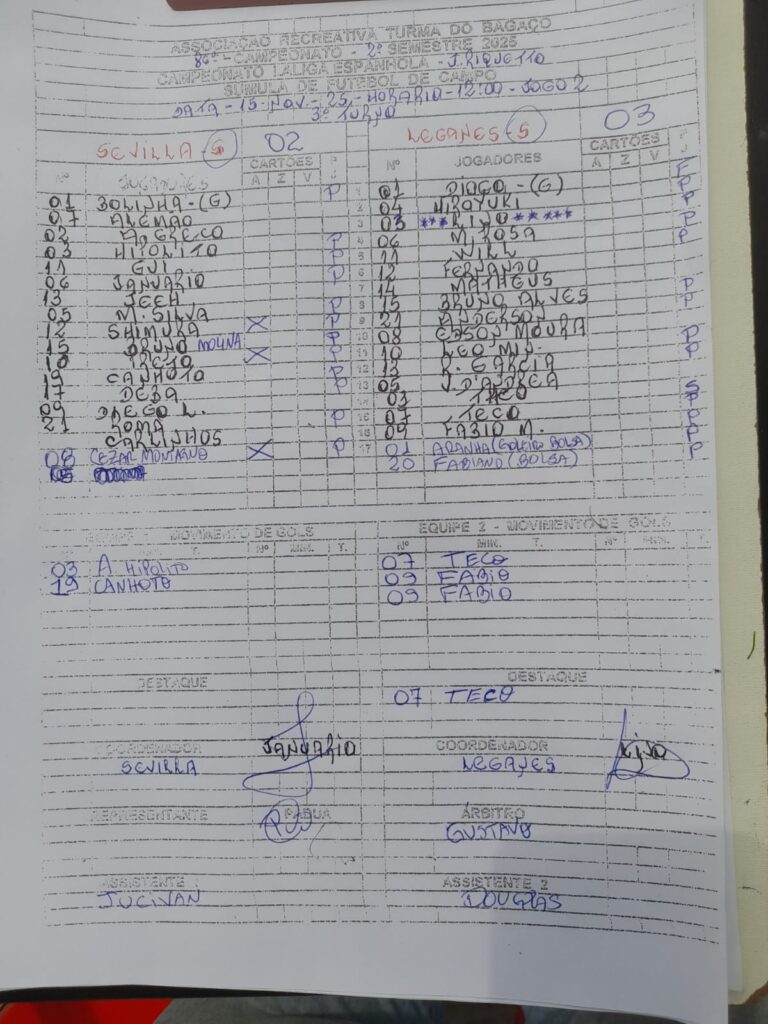 ASSOCIAÇÃO RECREATIVA TURMA DO BAGAÇO
86º - CAMPEONATO - 2º SEMESTRE 2025
CAMPEONATO LALIGA ESPANHOLA - J.RIQUETTO
SÚMULA DE FUTEBOL DE CAMPO
DATA - 15 - NOV. - 25 - HORARIO - 12:00 - JOGO 2
3º TURNO
SEVILLA 02
LEGANES - 5 03
Nº JOGADORES CARTÕES A Z V
Nº JOGADORES CARTÕES A Z V
01 BOLINHA - (G) P
07 ALEMAO
02 A. GRECO
03 HIPOLITO P
11 GUI P
06 JANUARIO P
13 JEEH
05 M. SILVA P
12 SHIMURA X P
15 BRUNO MOLINA P
18 X P
19 CANHOTO P
17 DEBA P
09 DIEGO L.
21 ROMA P
CARLINHOS
08 CEZAR MONTAGNO X P
01 DIOGO - (G)
04 HIROYUKI
03 ***KIJO*****
06 M. ROSA
11 WILL
12 FERNANDO
14 MATHEUS
15 BRUNO ALVES
21 ANDERSON
08 EDSON MOURA
10 LEO MIN.
13 R. GARCIA
05 J. D'ANDREA
07 TECO
09 FABIO M.
01 ARANHA (GOLEIRO BOLSA)
20 FABIANO (BOLSA)
EQUIPE 1 - MOVIMENTO DE GOLS
Nº MIN. T.
03 A HIPOLITO
19 CANHOTO
EQUIPE 2 - MOVIMENTO DE GOLS
Nº MIN. T. Nº MIN. T.
07 TECO
09 FABIO
09 FABIO
DESTAQUE
DESTAQUE
07 TECO
COORDENADOR JANUARIO
SEVILLA
COORDENADOR KIJO
LEGANES
REPRESENTANTE PABUA
ÁRBITRO
GUSTAVO
ASSISTENTE 1
JUCIVAN
ASSISTENTE 2
DOUGLAS